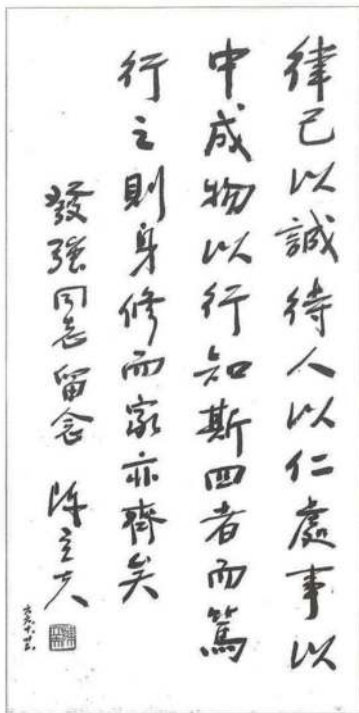 律己以誠待人以仁處事以
中成物以行知斯四者而篤
行之則身修而家亦齊矣
發強同志留念 陳立夫
六九、十、廿五